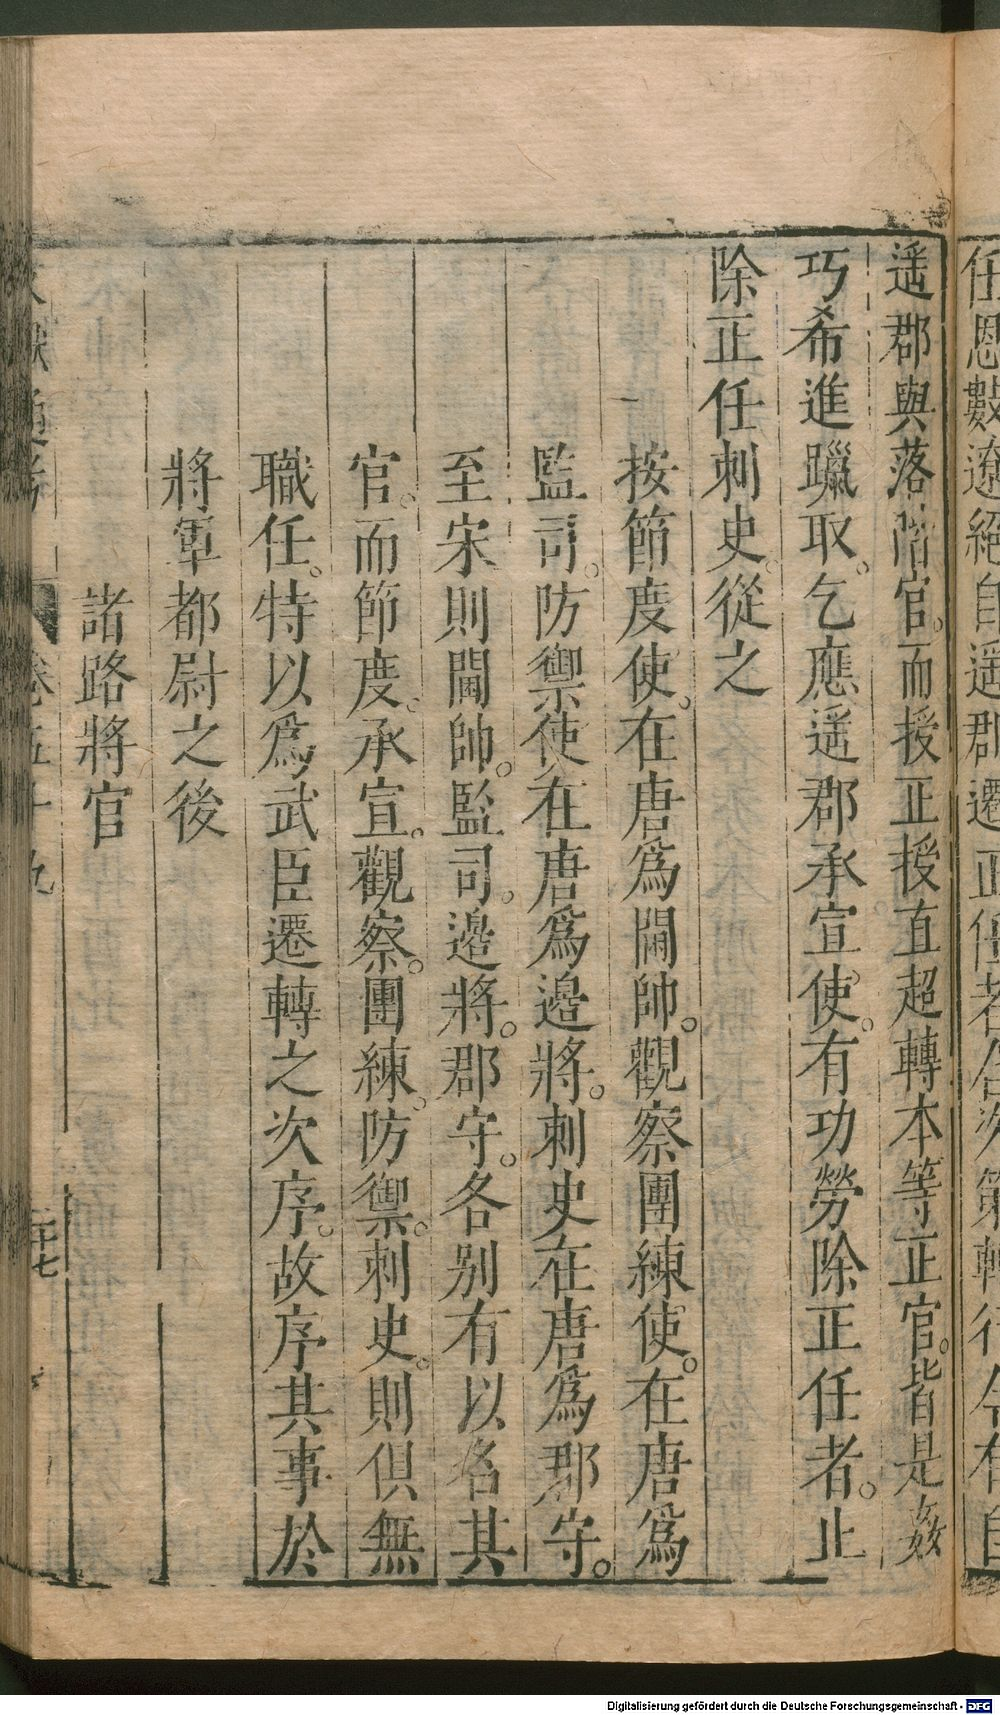 任恩數遼絕自遥郡遷正任者合次第轉行今有自
遥郡與落階官而授正授直超轉本等正官皆是姦
巧希進躐取乞應遥郡承宣使有功勞除正任者止
除正任刺史從之
按節度使在唐爲閫帥觀察團練使在唐爲
監司防禦使在唐爲邊將刺史在唐爲郡守
至宋則閫帥監司邊將郡守各别有以名其
官而節度承宣觀察團練防禦刺史則俱無
職任特以爲武臣遷轉之次序故序其事於
將軍都尉之後
諸路將官
獻通考 卷五十九 二十七
Digitalisierung gefördert durch die Deutsche Forschungsgemeinschaft - DFG